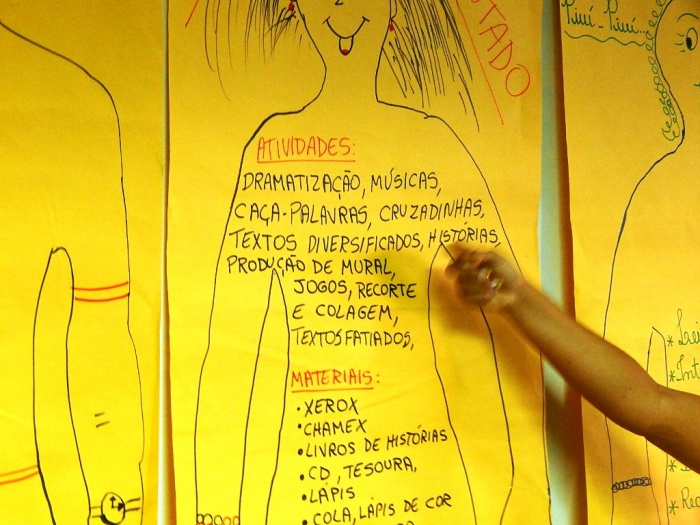 TADO
Piuí-Piuí...
ATIVIDADES:
DRAMATIZAÇÃO, MÚSICAS,
CAÇA-PALAVRAS, CRUZADINHAS,
TEXTOS DIVERSIFICADOS, HISTÓRIAS,
PRODUÇÃO DE MURAL,
JOGOS, RECORTE
E COLAGEM,
TEXTOS FATIADOS,
MATERIAIS:
• XEROX
• CHAMEX
• LIVROS DE HISTÓRIAS
• CD, TESOURA,
• LÁPIS
• COLA, LÁPIS DE COR